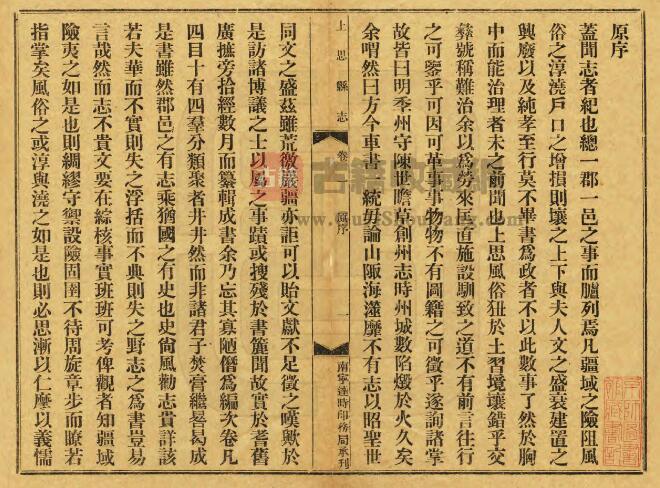 原序
蓋聞志者紀也總一郡一邑之事而臚列焉凡疆域之險阻風
俗之淳澆戶口之增損則壤之上下與夫人文之盛衰建置之
興廢以及純孝至行莫不畢書爲政者不以此數事了然於胸
中而能治理者未之前聞也上思風俗狃於土習境壤錯乎交
彝號稱難治余以爲勞來匡直施設馴致之道不有前言往行
之可鑒乎可因可革事事物物不有圖籍之可徵乎遂詢諸掌
故皆曰明季州守陳世瞻草創州志時州城數陷燬於火久矣
余喟然曰方今車書一統毋論山陬海澨靡不有志以昭聖世
上思縣志
卷
原序
一
南寧達時印務局承刊
同文之盛茲雖荒徼巖疆亦詎可以貽文獻不足徵之嘆歟於
是訪諸博議之士以風之事蹟或搜殘於書簏聞故實於耆舊
廣摭旁拾經數月而纂輯成書余乃忘其寡陋僭爲編次卷凡
四目十有四羣分類聚者井井然而非諸君子焚膏繼晷曷成
是書雖然郡邑之有志乘猶國之有史也史尙風勸志貴詳該
若夫華而不實則失之浮括而不典則失之野志之爲書豈易
言哉然而志不貴文要在綜核事實班班可考俾觀者知疆域
險夷之如是也則綢繆守禦設險固圉不待周旋章步而瞭若
指掌矣風俗之或淳與澆之如是也則必思漸以仁摩以義懦